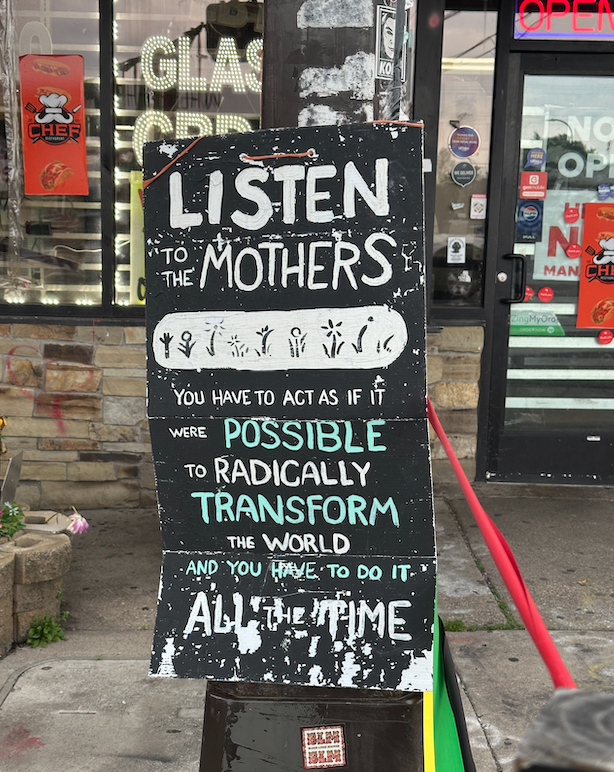 OPEN
GLAS
CHEF
LISTEN
TO
THE MOTHERS
YOU HAVE TO ACT AS IF IT
WERE POSSIBLE
TO RADICALLY
TRANSFORM
THE WORLD
AND YOU HAVE TO DO IT
ALL THE TIME
NO
OP
N
MAN
ZingMyOrd
BLM
BLM